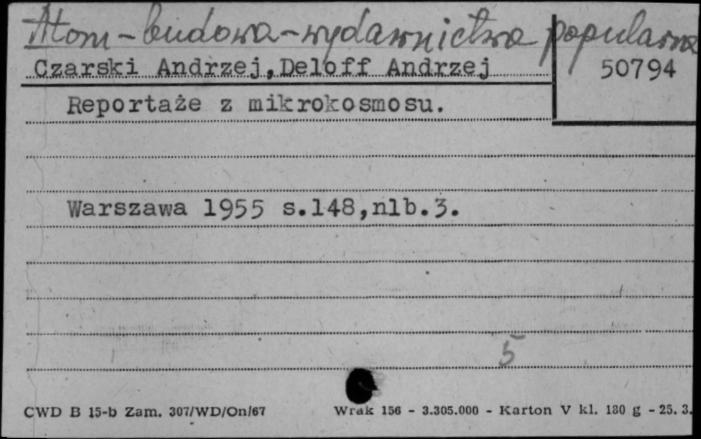 Atom-budowa-wydawnictwa popularne
Czarski Andrzej,Deloff Andrzej
50794
Reportaże z mikrokosmosu.
Warszawa 1955 s.148,nlb.3.
5
CWD B 15-b Zam. 307/WD/On/67 Wrak 156 - 3.305.000 - Karton V kl. 180 g - 25. 3.